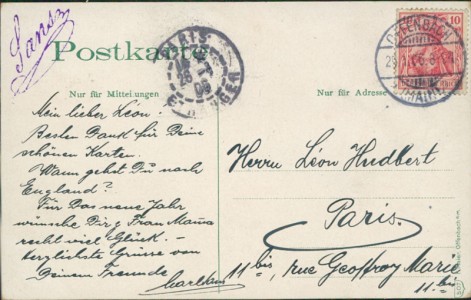 Postkarte
Nur für Mitteilungen
Nur für Adresse
Mein lieber Léon!
Besten Dank für Deine
schönen Karten.
Wann gehst Du nach
England?
Für Das neue Jahr
wünsche Dir & Frau Mama
recht viel Glück. —
herzlichste Grüsse von
Deinem Freunde
Herrn Léon Hudbert
Paris.
11 bis, rue Geoffroy Marie
11. bis
PARIS
ETRANGER
OFFENBACH
(MAIN)
10